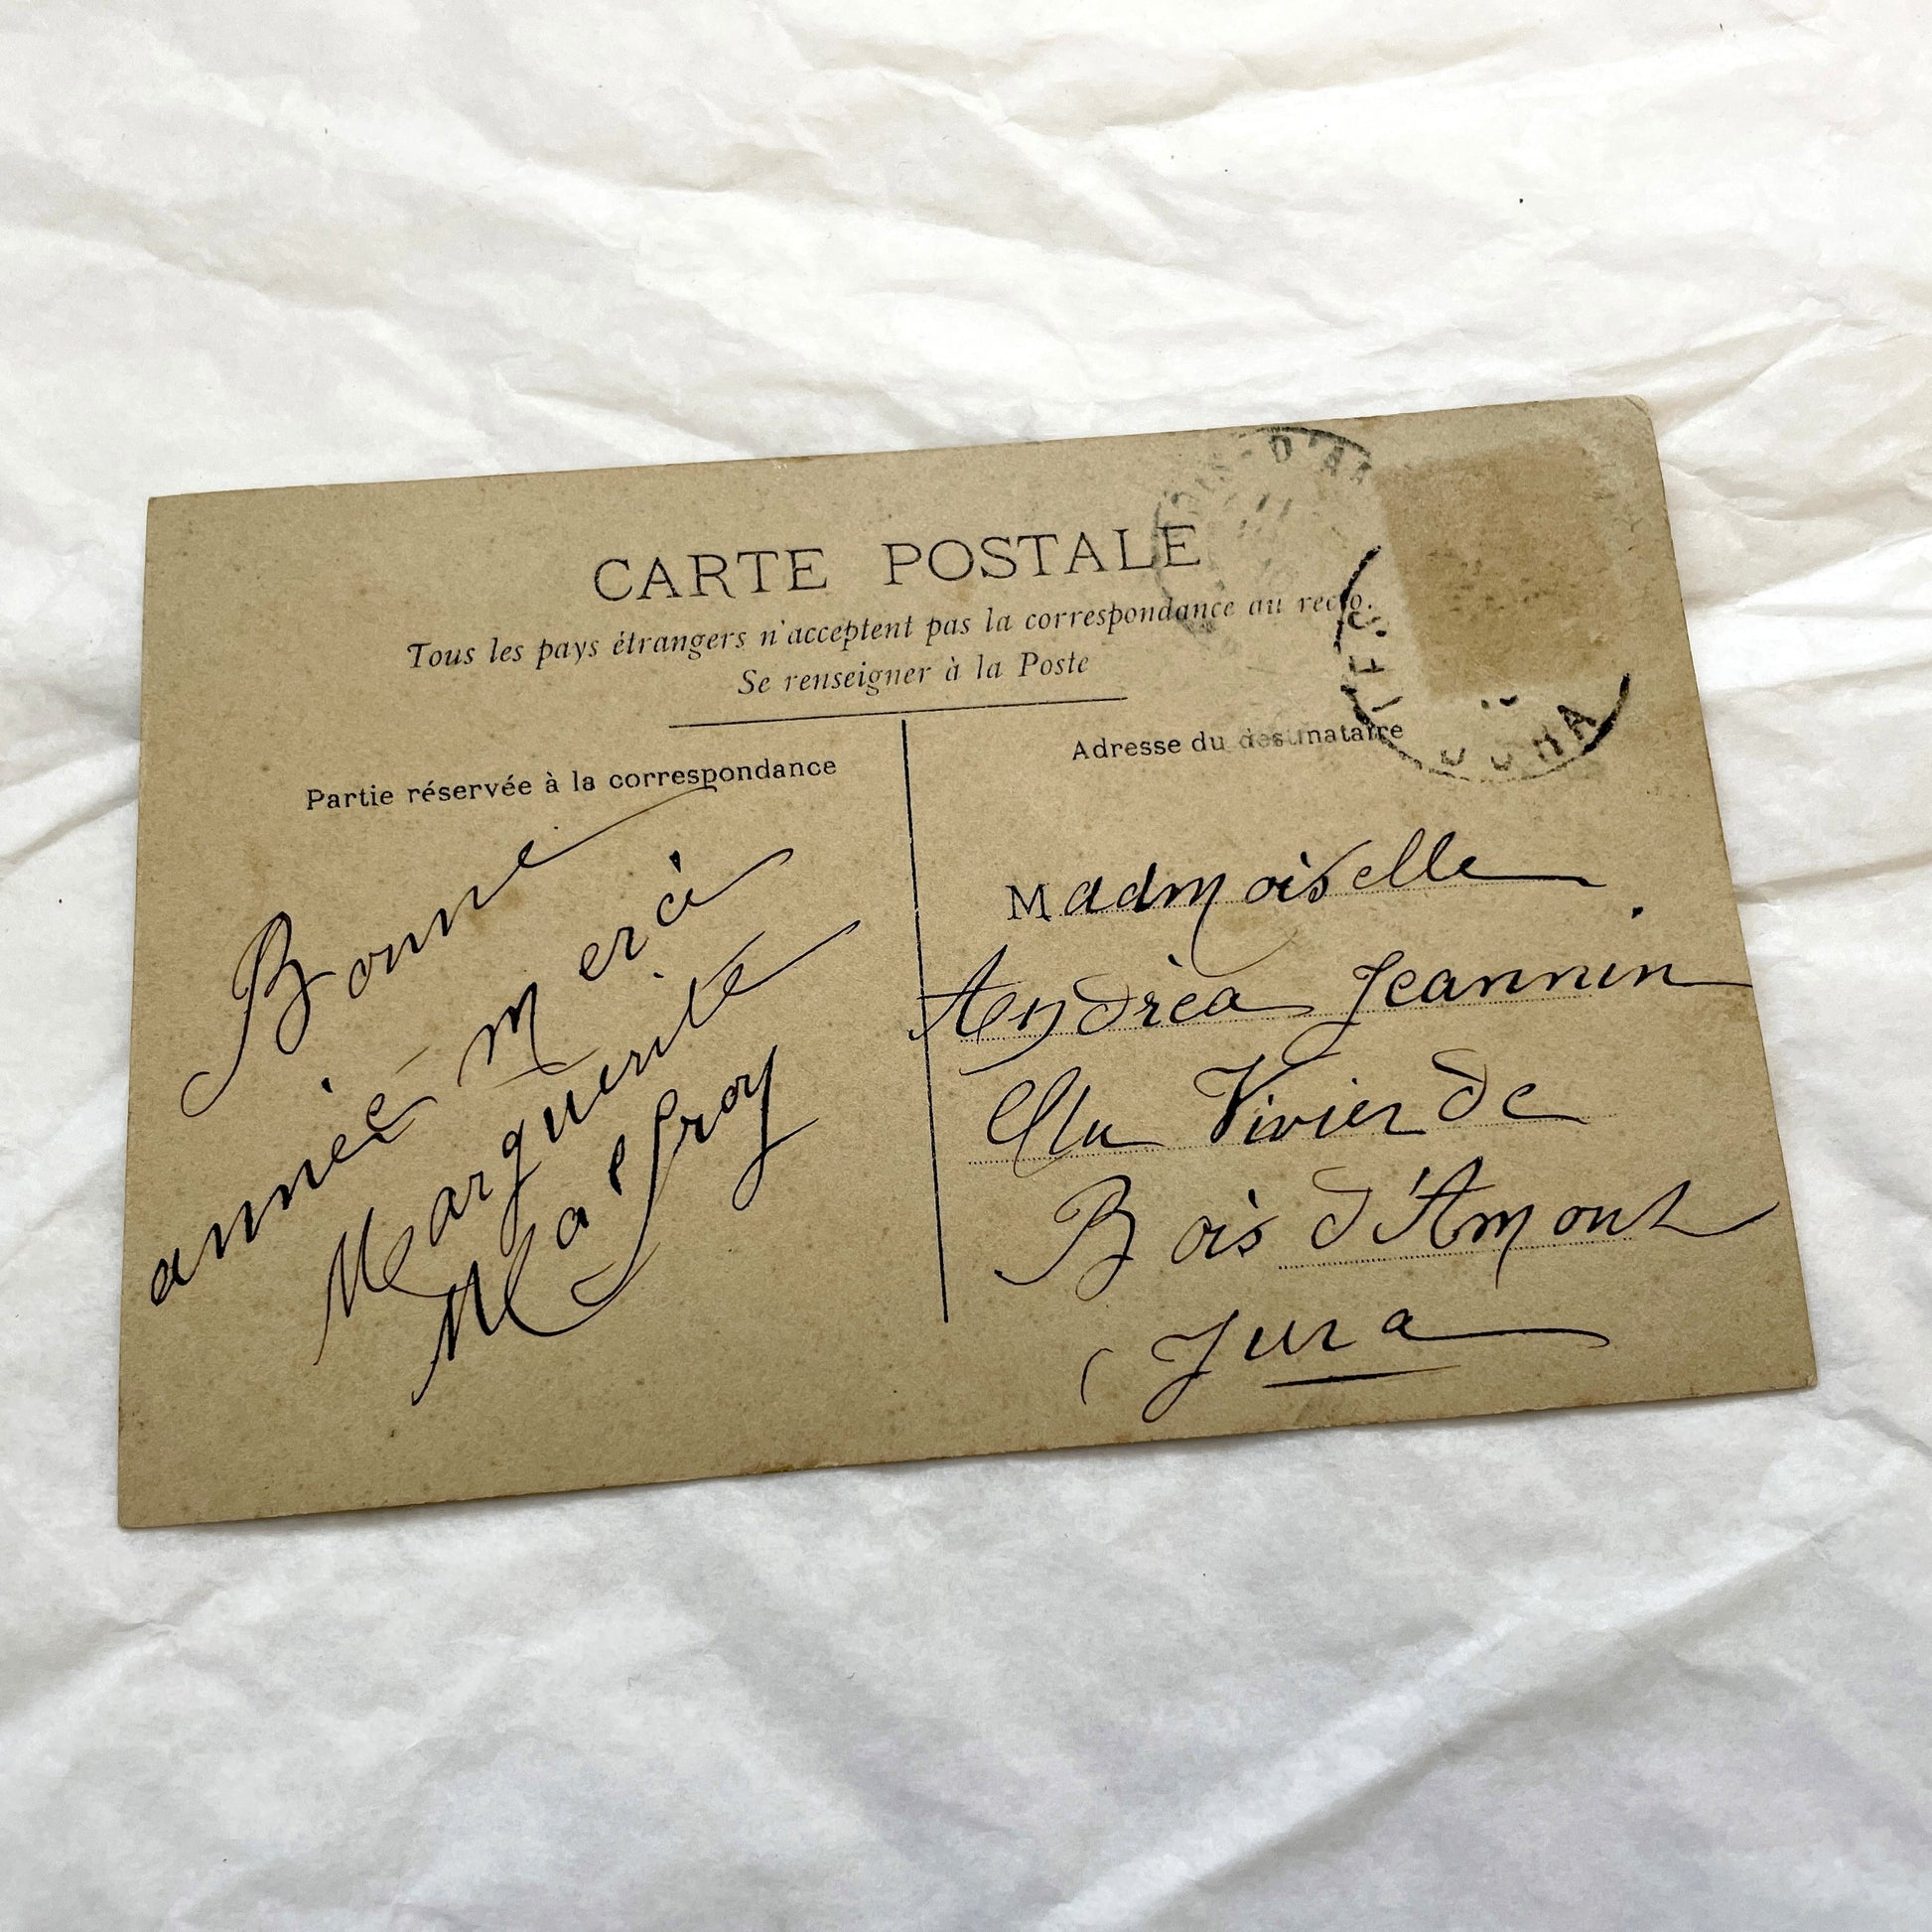 CARTE POSTALE
Tous les pays étrangers n'acceptent pas la correspondance au recto.
Se renseigner à la Poste
Partie réservée à la correspondance
Adresse du destinataire
Bonne
année merci
Marguerite
Malfroy
Madmoiselle
Andréa Jeannin
Au Vivier de
Bois d'Amont
(Jura
D'A
JURA